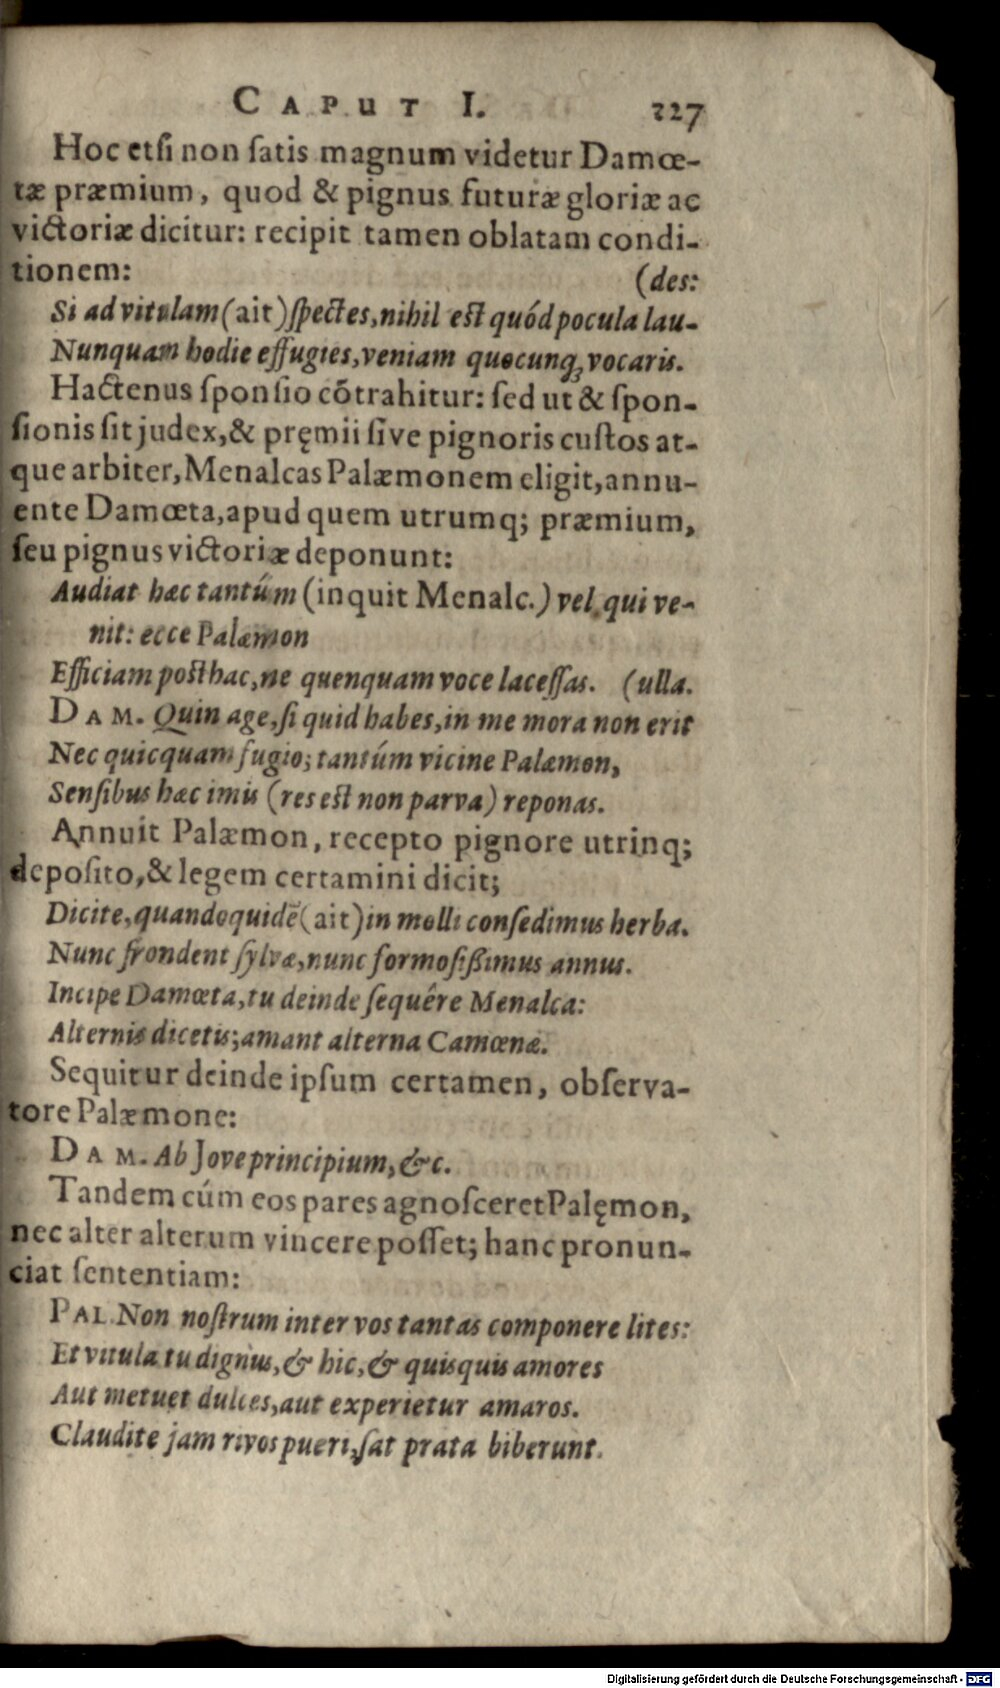 CAPUT I. 227
Hoc etsi non satis magnum videtur Damœ-
tæ præmium, quod & pignus futuræ gloriæ ac
victoriæ dicitur: recipit tamen oblatam condi-
tionem: (des:
Si ad vitulam (ait) spectes, nihil est quód pocula lau-
Nunquam hodie effugies, veniam quocunq; vocaris.
Hactenus sponsio cōtrahitur: sed ut & spon-
sionis sit judex, & pręmii sive pignoris custos at-
que arbiter, Menalcas Palæmonem eligit, annu-
ente Damœta, apud quem utrumq; præmium,
seu pignus victoriæ deponunt:
Audiat hæc tantúm (inquit Menalc.) vel qui ve-
nit: ecce Palæmon
Efficiam posthac, ne quenquam voce lacessas. (ulla.
DAM. Quin age, si quid habes, in me mora non erit
Nec quicquam fugio; tantúm vicine Palæmon,
Sensibus hæc imis (res est non parva) reponas.
Annuit Palæmon, recepto pignore utrinq;
deposito, & legem certamini dicit;
Dicite, quandoquidē (ait) in molli consedimus herba.
Nunc frondent sylvæ, nunc formosißimus annus.
Incipe Damœta, tu deinde sequêre Menalca:
Alternis dicetis; amant alterna Camœnæ.
Sequitur deinde ipsum certamen, observa-
tore Palæmone:
DAM. Ab Jove principium, &c.
Tandem cúm eos pares agnosceret Palęmon,
nec alter alterum vincere posset; hanc pronun-
ciat sententiam:
PAL. Non nostrum inter vos tantas componere lites:
Et vitula tu dignus, & hic, & quisquis amores
Aut metuet dulces, aut experietur amaros.
Claudite jam rivos pueri, sat prata biberunt.
Digitalisierung gefördert durch die Deutsche Forschungsgemeinschaft - DFG